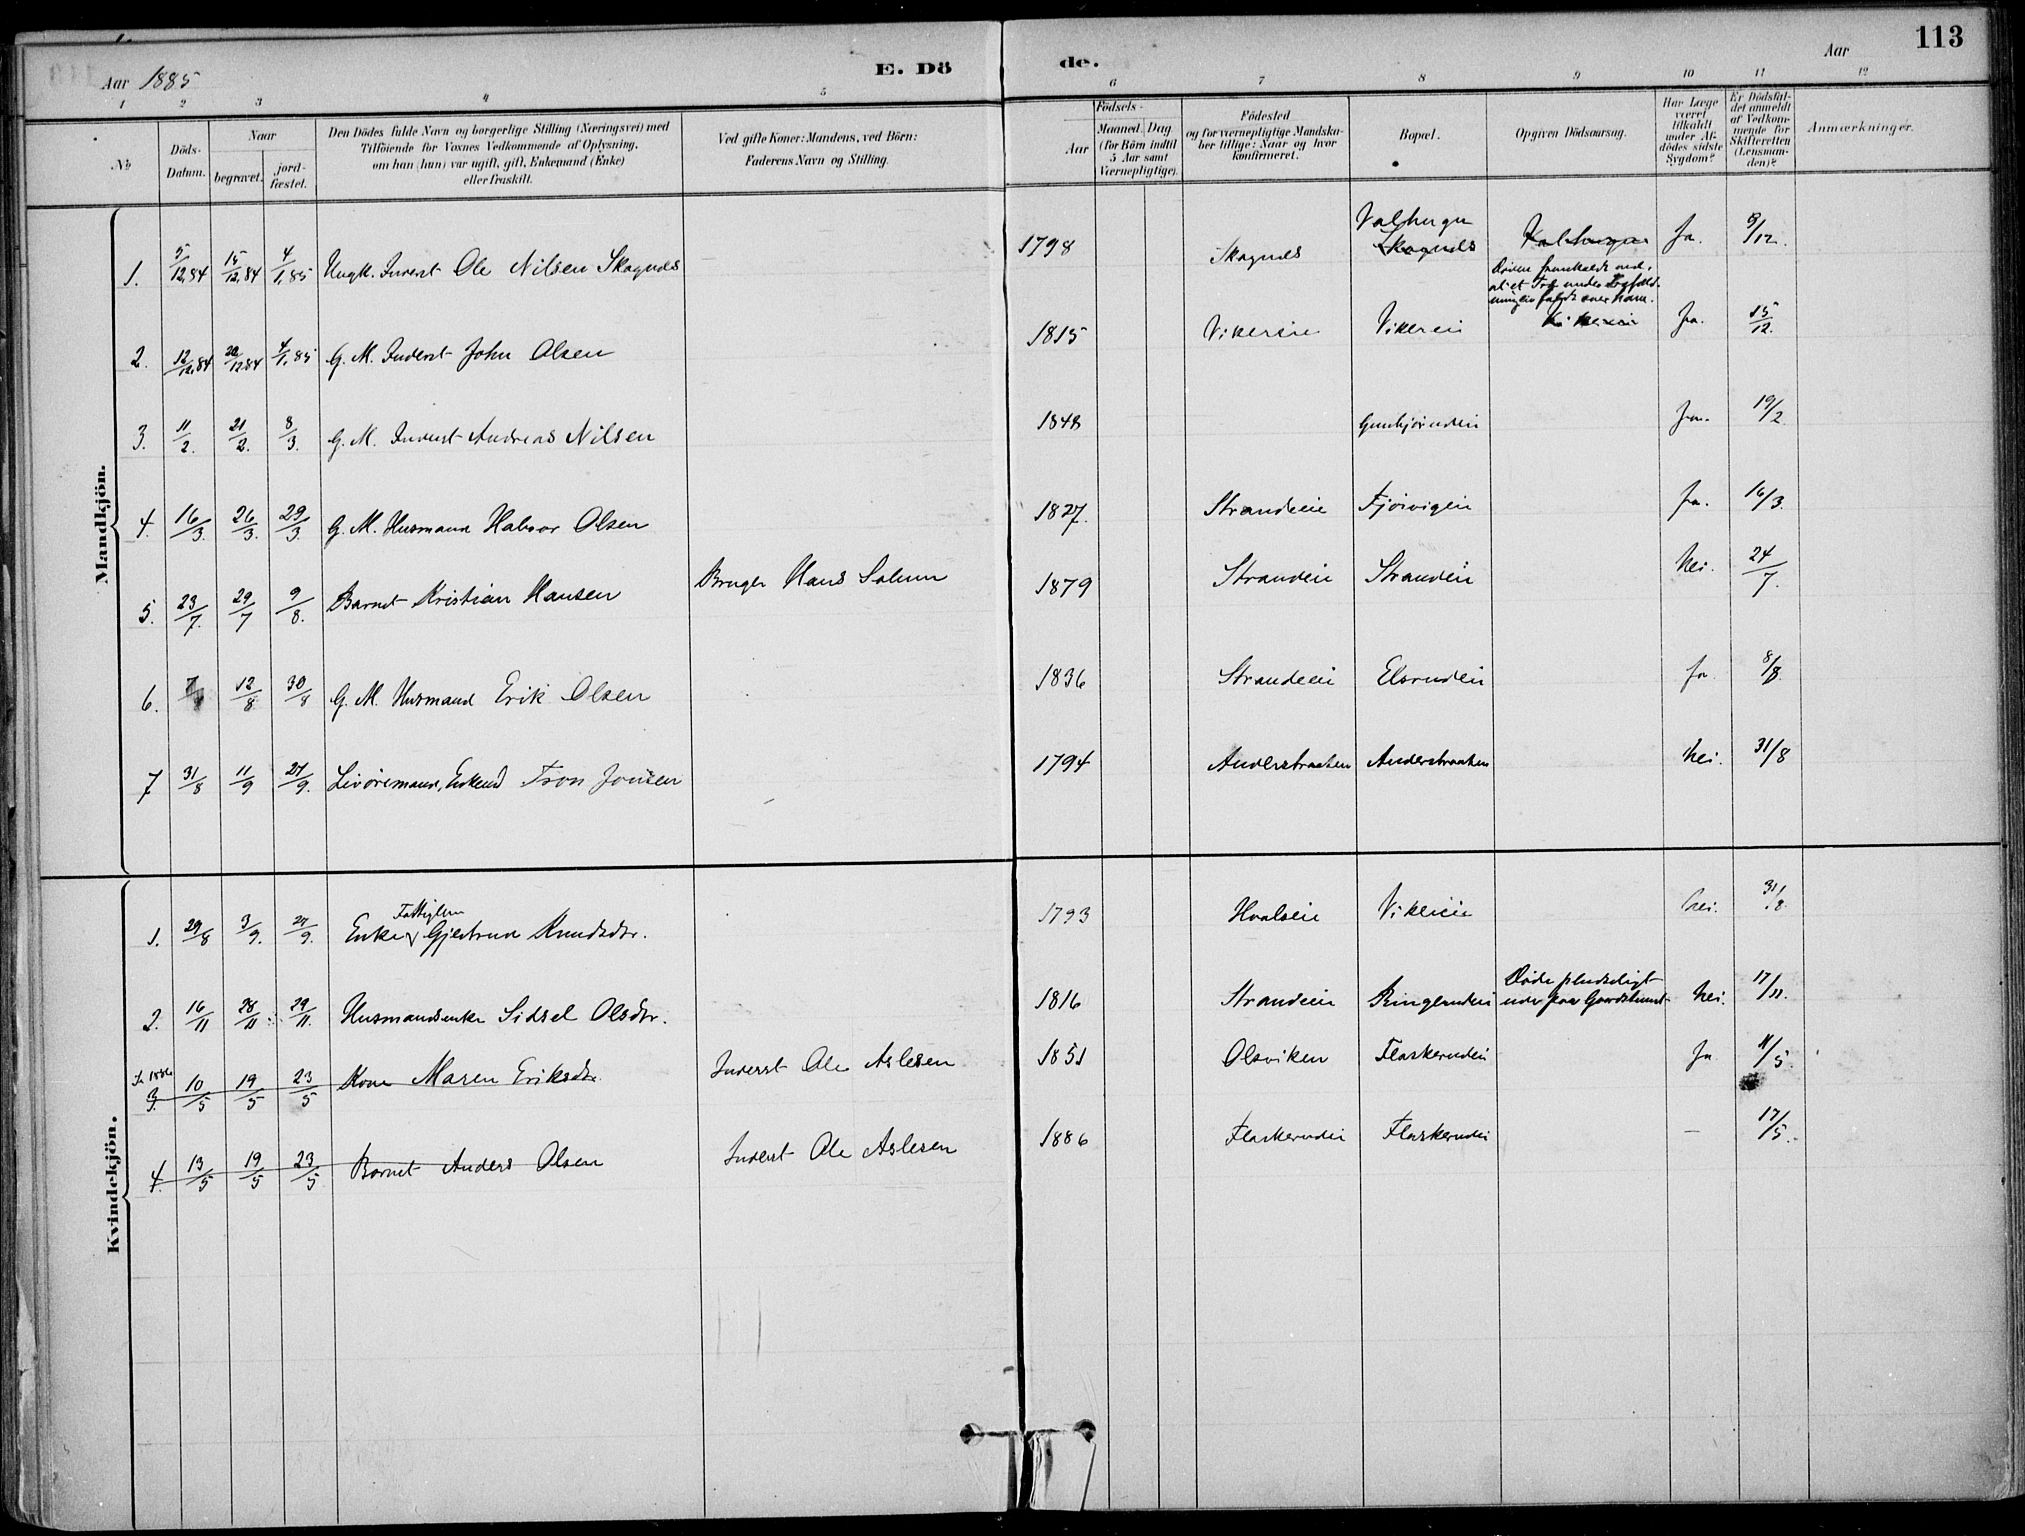 113
Aar 1885
E. Dö
de.
Aar
1 2 3 4 5 6 7 8 9 10 11 12
№
Döds-
Datum.
Naar
begravet.
jord-
fæstet.
Den Dödes fulde Navn og borgerlige Stilling (Næringsvei) med
Tilföiende for Voxnes Vedkommende af Oplysning,
om han (hun) var ugift, gift, Enkemand (Enke)
eller fraskilt.
Ved gifte Koner: Mandens, ved Börn:
Faderens Navn og Stilling.
Födsels-
Aar
Maaned. Dag.
(for Börn indtil
5 Aar samt
Værnepligtige).
Födested
og for værnepligtige Mandska-
ber tillige: Naar og hvor
konfirmeret.
Bopæl.
Opgiven Dödsaarsag.
Har Læge
været
tilkaldt
under Af-
dödes sidste
Sygdom?
Er Dödsfal-
det anmeldt
af Vedkom-
mende for
Skifteretten
(Lensman-
den)?
Anmærkninger.
Mandkjön.
1. 5/12.84 15/12.84 4/1.85 Ungk. Inderst Ole Nilsen Skagnæs 1798 Skagnæs Valhugn Skagnæs Valhugn Ja. 9/12.
2. 12/12.84 20/12.84 4/1.85 G. M. Inderst John Olsen 1815 Vikereie Vikerei Døden fremkaldt ved, at et Træ under over ham. Vikereie Ja. 15/12.
3. 11/2. 21/2. 8/3. G. M. Inderst Andreas Nilsen 1848 Gunbjørudei Ja. 19/2
4. 16/3. 26/3. 29/3. G. M. Husmand Halvor Olsen 1827. Strandeie Fjørvigei Ja. 16/3.
5. 23/7. 29/7 9/8. Barnet Kristian Hansen Bruger Hans Solum 1879 Strandeie Strandeie Nei. 24/7.
6. 7/8 12/8 30/8 G. M. Husmand Erik Olsen 1836 Strandeie Elsrudei Ja. 8/8.
7 31/8 11/9 27/9. Livøremand, Enkem Tron Jonsen 1794 Anderstraaken Anderstraaken Nei. 31/8
Kvindekjön.
1. 29/8 3/9. 27/9. Enke Fattiglem Gjertrud Knudsdtr. 1793 Hvalseie Vikereie Nei. 31/8
2. 16/11 28/11. 29/11. Husmandsenke Sidsel Olsdtr. 1816 Strandeie Ringerudei Døde pludseligt ude paa Gaardstunet Nei. 17/11.
Se 1886
3. 10/5 19/5 23/5 Kone Maren Eriksdtr. Inderst Ole Aslesen 1851 Olsviken Flaskerudei Ja 11/5.
4. 13/5 19/5 23/5 Barnet Anders Olsen Inderst Ole Aslesen 1886 Flaskerudei Flaskerudei — 17/5.